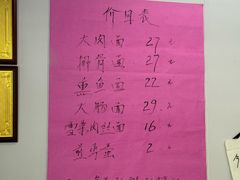 价目表
大肉面 27 元
排骨面 27 元
熏鱼面 22 元
大肠面 29 元
雪菜肉丝面 16 元
煎草蛋 2 元